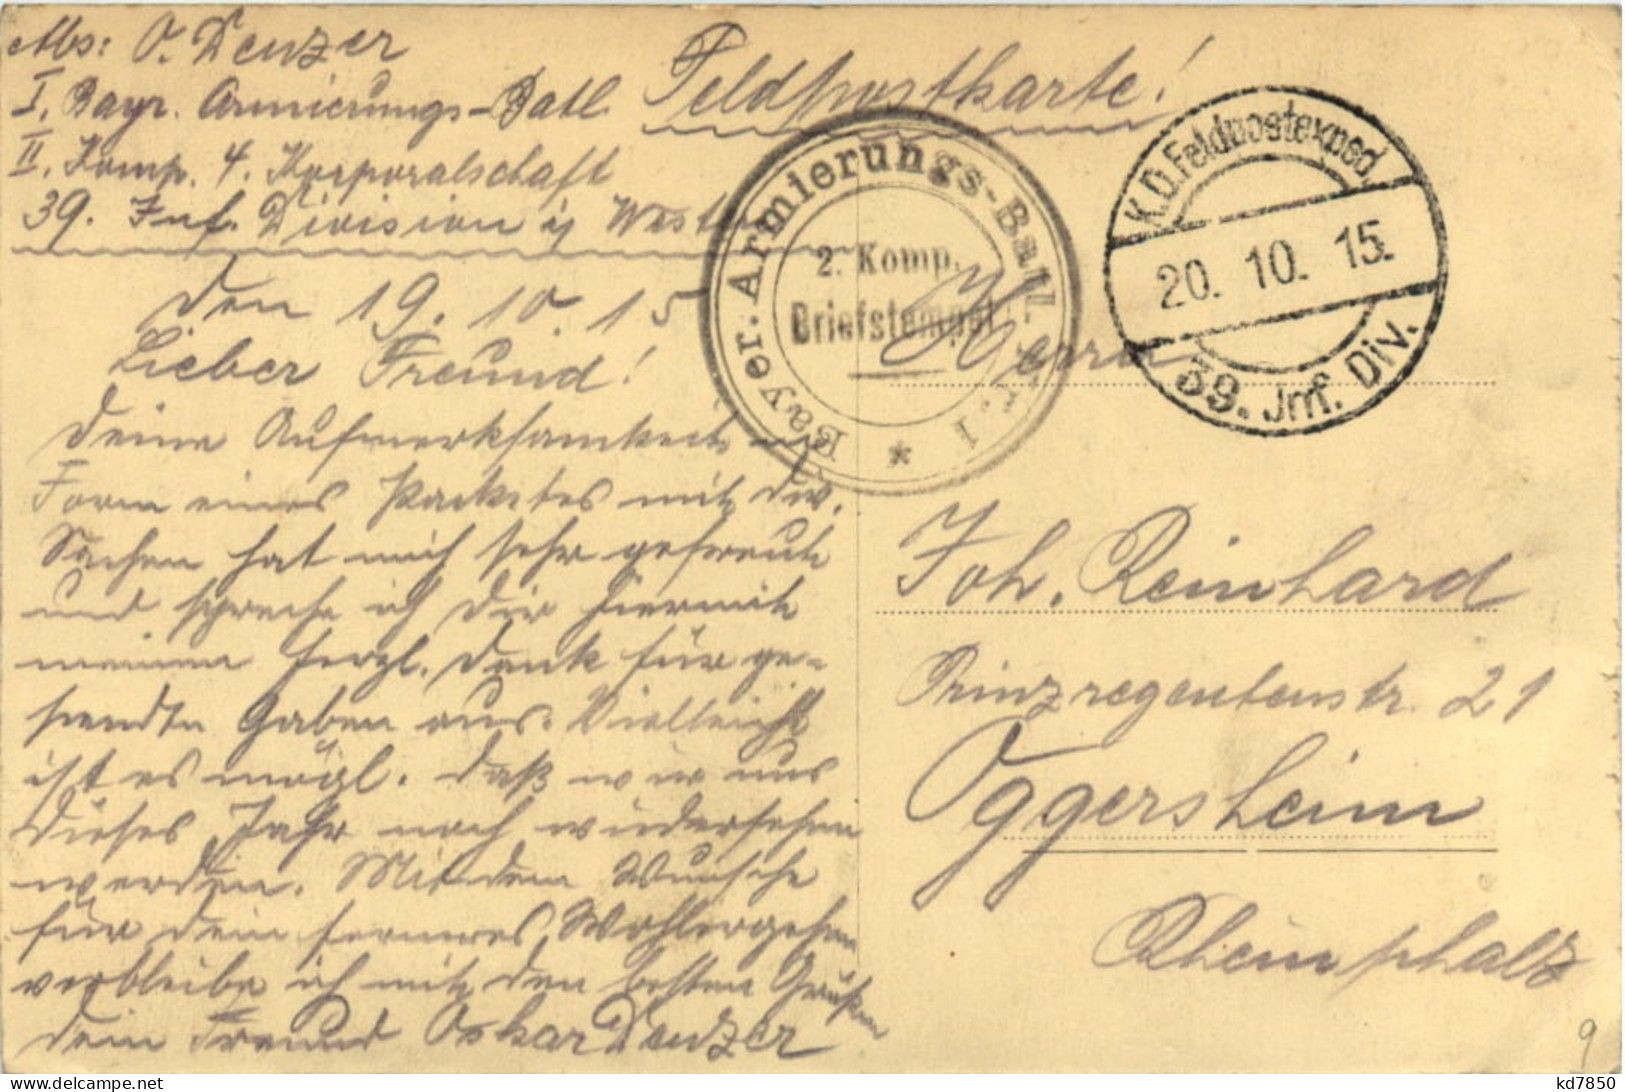 Abs: O. Denzer
I. Bayr. Armierungs-Batl.
II. Komp. 4. Korporalschaft
39. Inf. Division i/ Westen
Feldpostkarte!
Bayer. Armierungs-Batl. Nr. 1
2. Komp.
Briefstempel
K.D. Feldpostexped.
20. 10. 15.
39. Jnf. Div.
den 19. 10. 15
Lieber Freund!
Deine Aufmerksamkeit in
Form eines Packetes mit div.
Sachen hat mich sehr gefreut
und spreche ich Dir hiermit
meinen herzl. Dank für ge-
sandte Gaben aus. Vielleicht
ist es mögl. daß wir uns
dieses Jahr noch wiedersehen
werden. Mit dem Wunsche
für dein ferneres Wohlergehen
verbleibe ich mit den besten Grüßen
dein Freund Oskar Denzer
Herrn
Joh. Reinhard
Prinzregentenstr. 21
Oggersheim
Rheinphalz
9
www.delcampe.net
kd7850